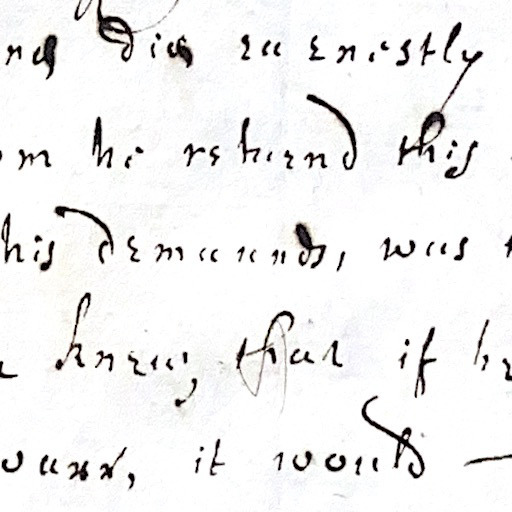 did earnestly
he returnd this
his demaunds, was
knew, that if he
it would —